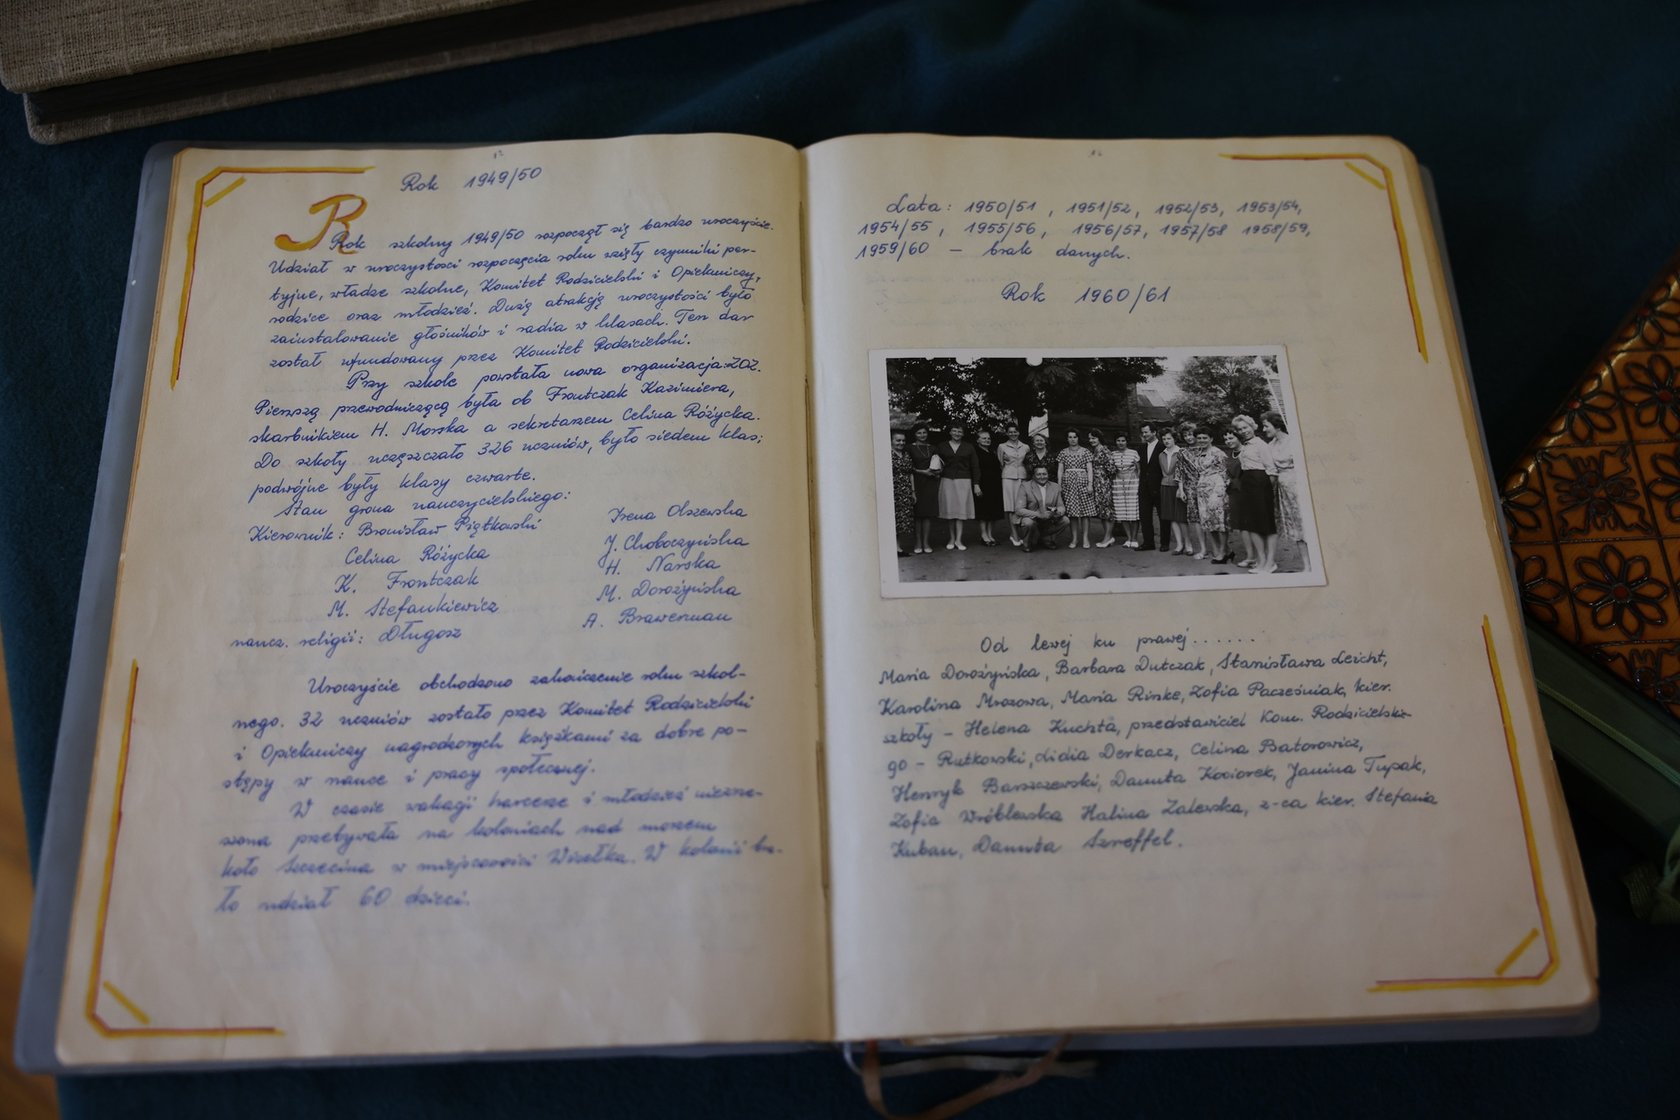 Rok 1949/50
Rok szkolny 1949/50 rozpoczął się bardzo uroczyście.
Udział w uroczystości rozpoczęcia roku wzięły czynniki par-
tyjne, władze szkolne, Komitet Rodzicielski i Opiekuńczy,
rodzice oraz młodzież. Dużą atrakcją uroczystości było
zainstalowanie głośników i radia w klasach. Ten dar
został ufundowany przez Komitet Rodzicielski.
Przy szkole powstała nowa organizacja-ZOZ.
Pierwszą przewodniczącą była ob Frontczak Kazimiera,
skarbnikiem H. Morska a sekretarzem Celina Różycka.
Do szkoły uczęszczało 326 uczniów, było siedem klas;
podwójne były klasy czwarte.
Stan grona nauczycielskiego:
Kierownik: Bronisław Piątkowski Irena Olszewska
Celina Różycka J. Choboczyńska
K. Frontczak H. Narska
M. Stefankiewicz M. Dorożyńska
naucz. religii: Długosz A. Brawerman
Uroczyście obchodzono zakończenie roku szkol-
nego. 32 uczniów zostało przez Komitet Rodzicielski
i Opiekuńczy nagrodzonych książkami za dobre po-
stępy w nauce i pracy społecznej.
W czasie wakacji harcerze i młodzież niezrze-
szona przebywała na koloniach nad morzem
koło Szczecina w miejscowości Wisełka. W kolonii bra-
ło udział 60 dzieci.
Lata: 1950/51, 1951/52, 1952/53, 1953/54,
1954/55, 1955/56, 1956/57, 1957/58 1958/59,
1959/60 — brak danych.
Rok 1960/61
Od lewej ku prawej.......
Maria Dorożyńska, Barbara Dutczak, Stanisława Leicht,
Karolina Mrozowa, Maria Rinke, Zofia Pacześniak, kier.
szkoły - Helena Kuchta, przedstawiciel Kom. Rodzicielskie-
go - Rutkowski, Lidia Derkacz, Celina Batorowicz,
Henryk Barszczewski, Danuta Kociorek, Janina Tupak,
Zofia Wróblewska Halina Zalewska, z-ca kier. Stefania
Kuban, Danuta Szreffel.